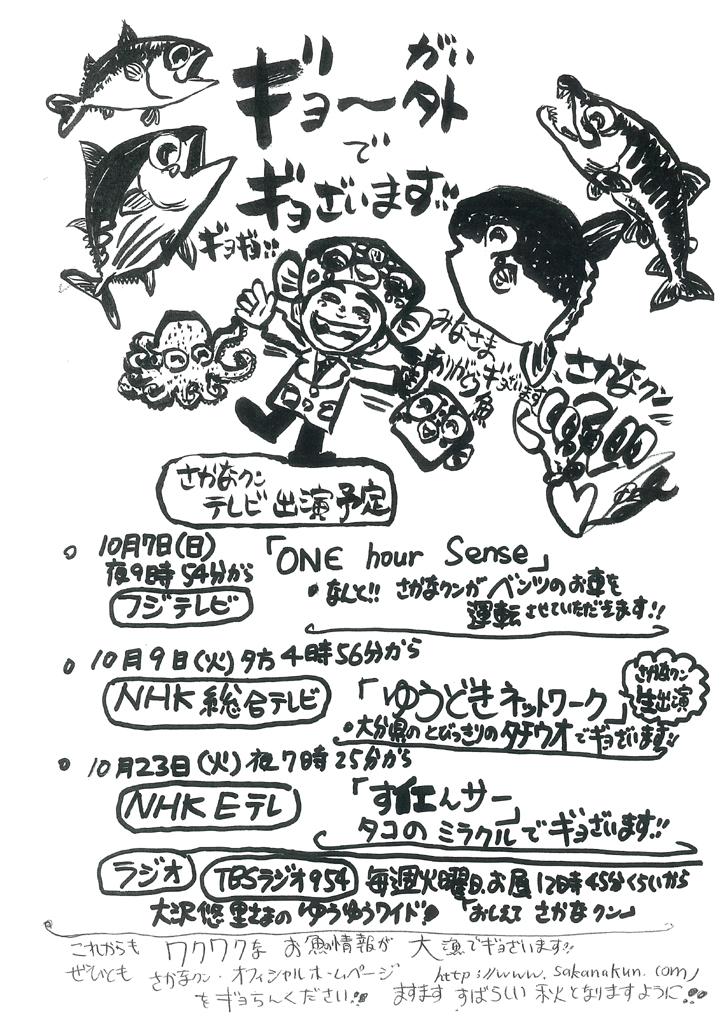 ギョ〜外
がい
で
ギョざいます!!
ギョギョ!!
みなさま
ありがとう
ギョざいます
魚
さかなクン
さかなクン
テレビ出演予定
10月7日(日) 「ONE hour Sense」
夜9時54分から
フジテレビ
・なんと!! さかなクンがベンツのお車を
運転させていただきます!!
10月9日(火)夕方4時56分から
NHK総合テレビ 「ゆうどきネットワーク」
さかなクン
生出演
・大分県のとびっきりのタチウオでギョざいます!!
10月23日(火)夜7時25分から
NHK Eテレ 「すイエんサー」
タコのミラクルでギョざいます!!
ラジオ TBSラジオ954 毎週火曜日お昼12時45分くらいから
大沢悠里さまの「ゆうゆうワイド」 「おしえて さかなクン」
これからも ワクワクな お魚情報が 大漁でギョざいます!!
ぜひとも さかなクン・オフィシャルホームページ http://www.sakanakun.com/
をギョらんください!! ますます すばらしい 秋となりますように!!